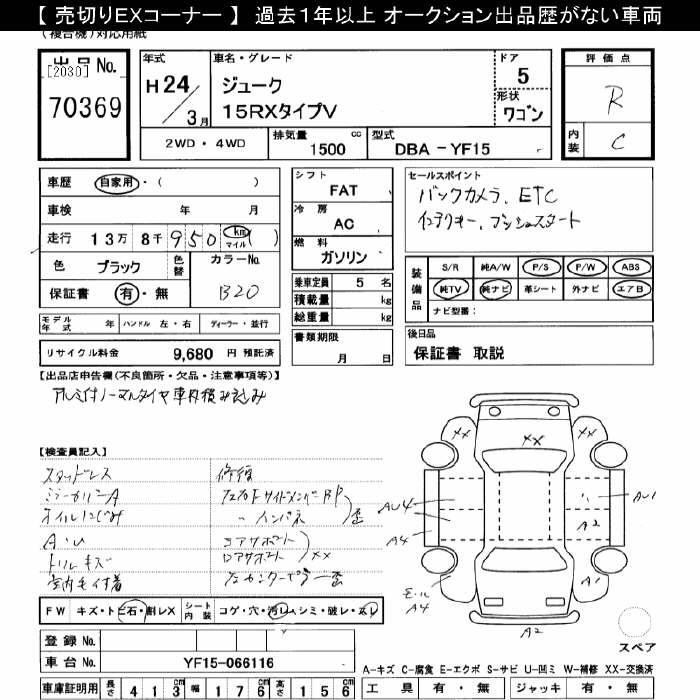 【 売切りEXコーナー 】 過去1年以上 オークション出品歴がない車両
(複合機)対応用紙
出品 No.
[2030]
70369
年式
H 24 / 3 月
車名・グレード
ジューク
15RXタイプV
ドア
5
形状
ワゴン
2WD ・ 4WD
排気量 1500 cc
型式 DBA - YF15
評価点
R
内装
C
車歴 自家用・( )
車検 年 月
走行 13万 8千 950 km マイル ( )
色 ブラック 色替
カラーNo. B20
保証書 有・無
モデル年式 年 ハンドル 左・右 ディーラー・並行
リサイクル料金 9,680 円 預託済
シフト
FAT
冷房
AC
燃料
ガソリン
乗車定員 5 名
積載量 kg
総重量 kg
書類期限
月 日
セールスポイント
バックカメラ、ETC
インテリキー、プッシュスタート
装備品
S/R 純A/W P/S P/W ABS
純TV 純ナビ 革シート 外ナビ エアB
ナビ型番:
後日品
保証書 取説
【出品店申告欄(不良箇所・欠品・注意事項等)】
アルミ付ノーマルタイヤ車内積み込み
【検査員記入】
スタッドレス
オイルにじみ
A・U
ドリルキズ
室内毛付着
修復
コアサポート
ロアサポート
XX
XX
XX
XX
AU4
A4
AU1
A2
A1
モール
A4
A2
スペア
FW キズ・トビ石・割レX
シート内装 コゲ・穴・汚レ・シミ・破レ・スレ
登録 No.
車台 No. YF15-066116
車庫証明用 長さ 413 cm 幅 176 cm 高さ 156 cm
A-キズ C-腐食 E-エクボ S-サビ U-凹ミ W-補修 XX-交換済
工具 有・無 ジャッキ 有・無